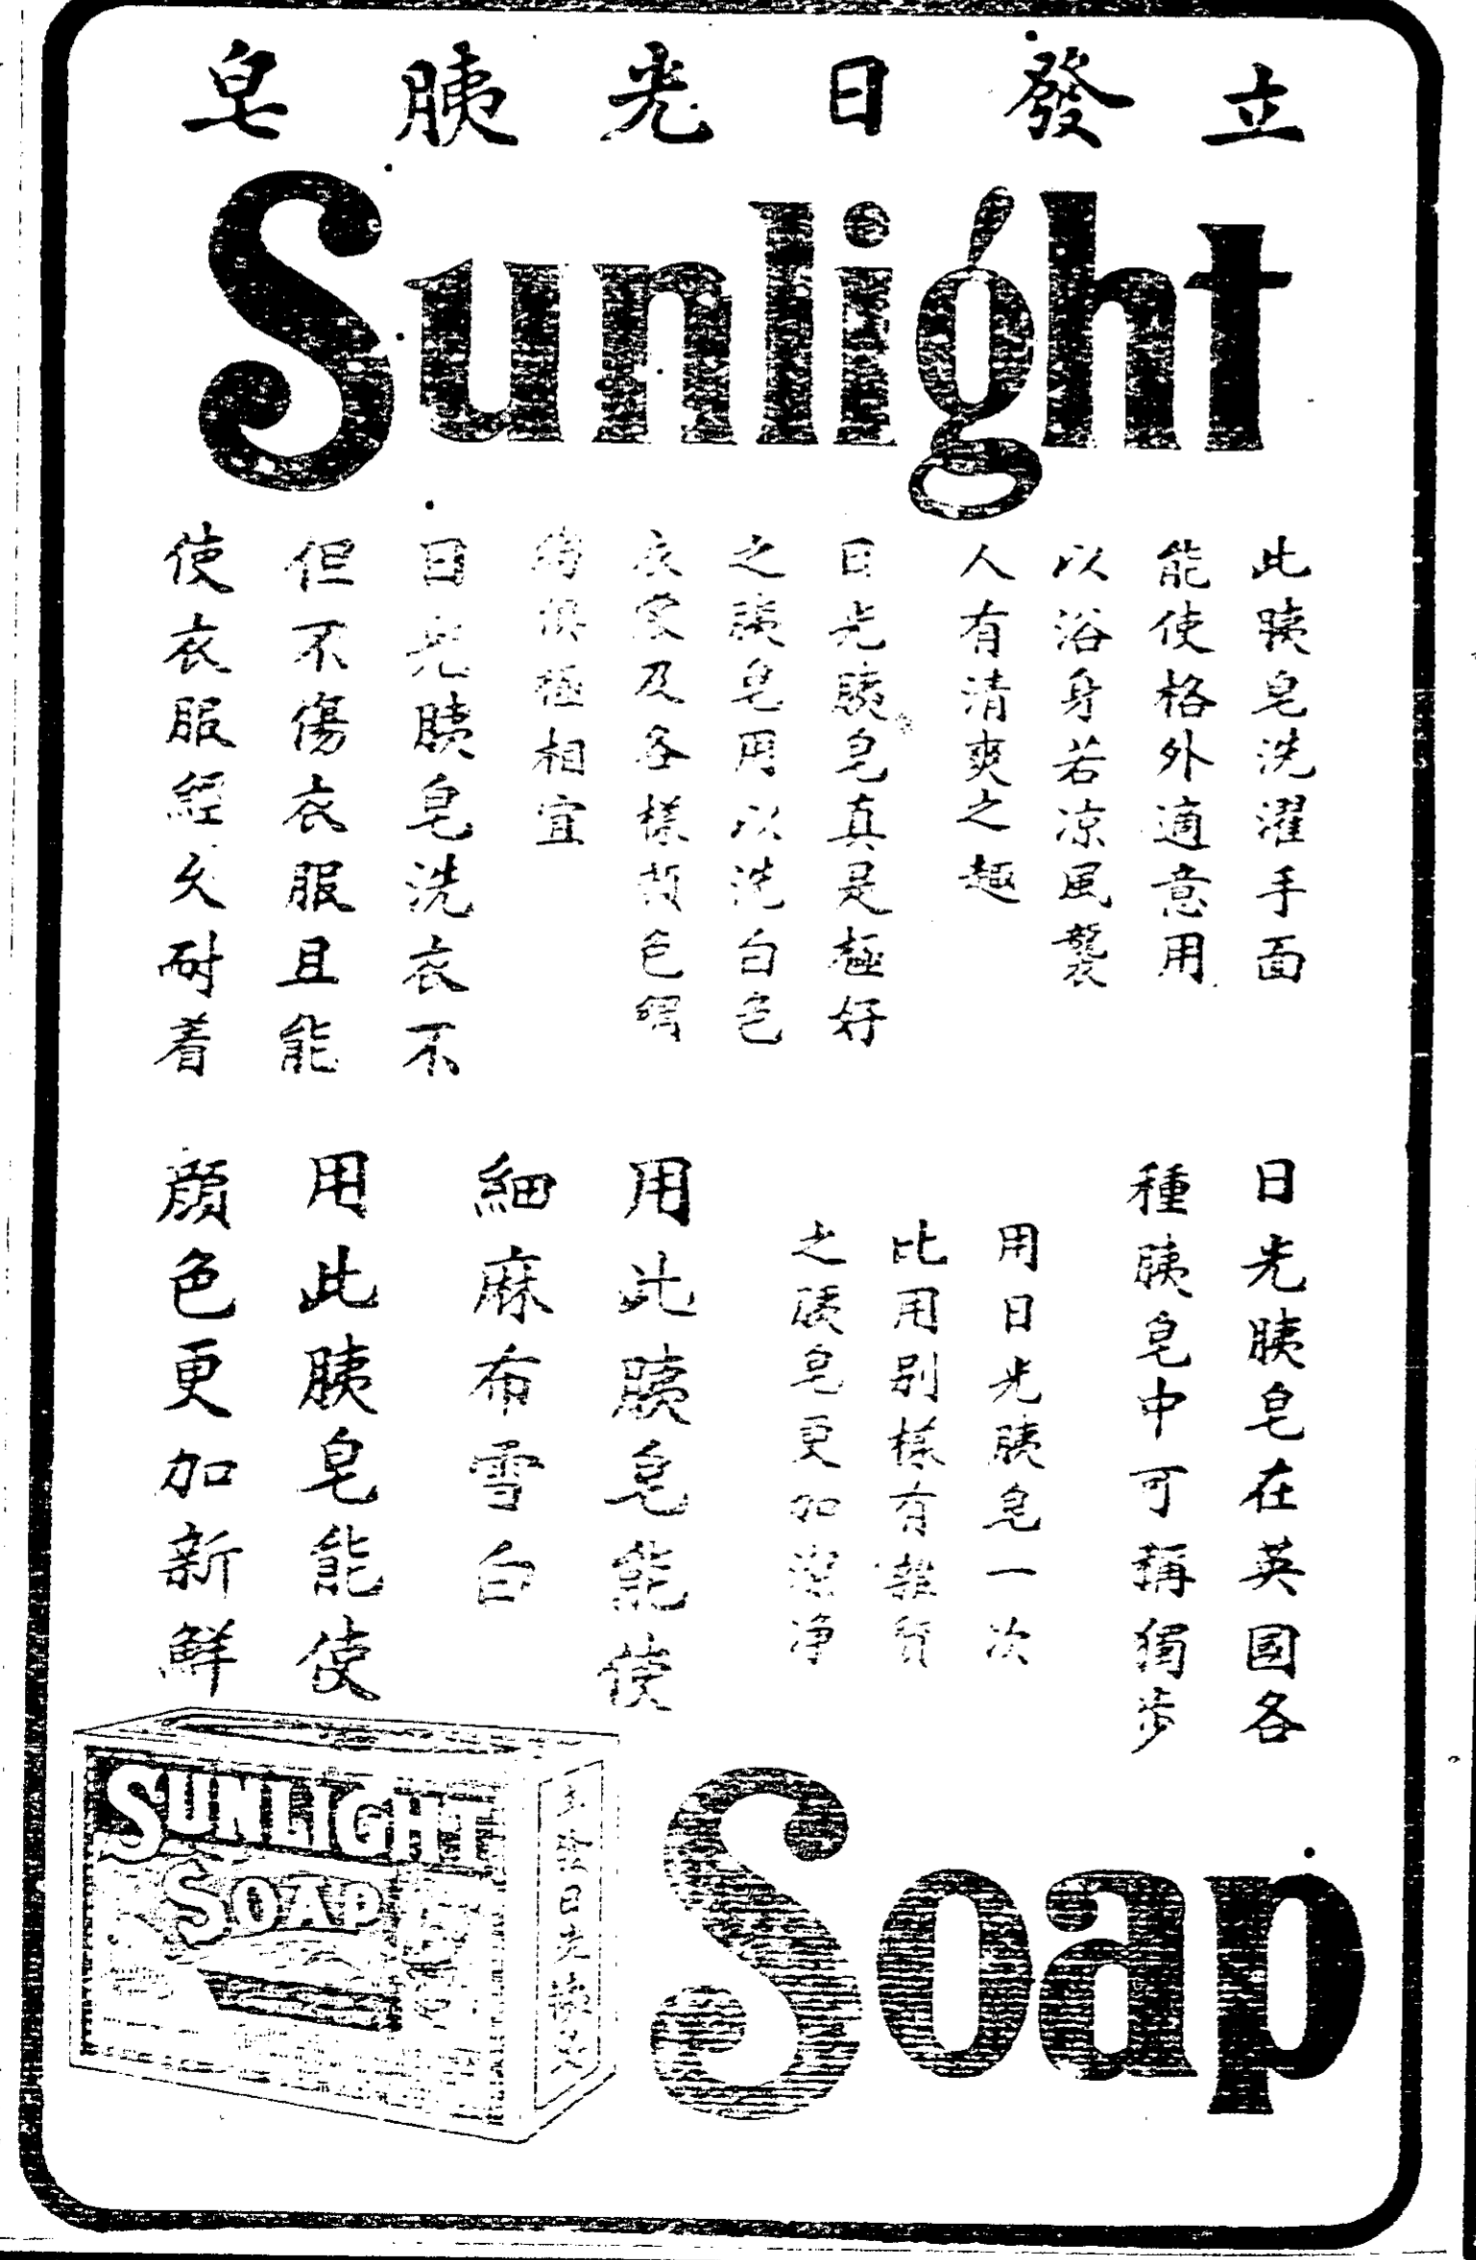 立發日光胰皂
Sunlight
此胰皂洗濯手面
能使格外適意用
以浴身若凉風襲
人有清爽之趣
日光胰皂真是極好
之胰皂用以洗白色
衣裳及各樣顏色綢
極相宜
日光胰皂洗衣不
但不傷衣服且能
使衣服經久耐着
日光胰皂在英國各
種胰皂中可稱獨步
用日光胰皂一次
比用别樣有雜質
之胰皂更加潔净
用此胰皂能使
細麻布雪白
用此胰皂能使
顔色更加新鮮
SUNLIGHT
SOAP
立發日光胰皂
Soap